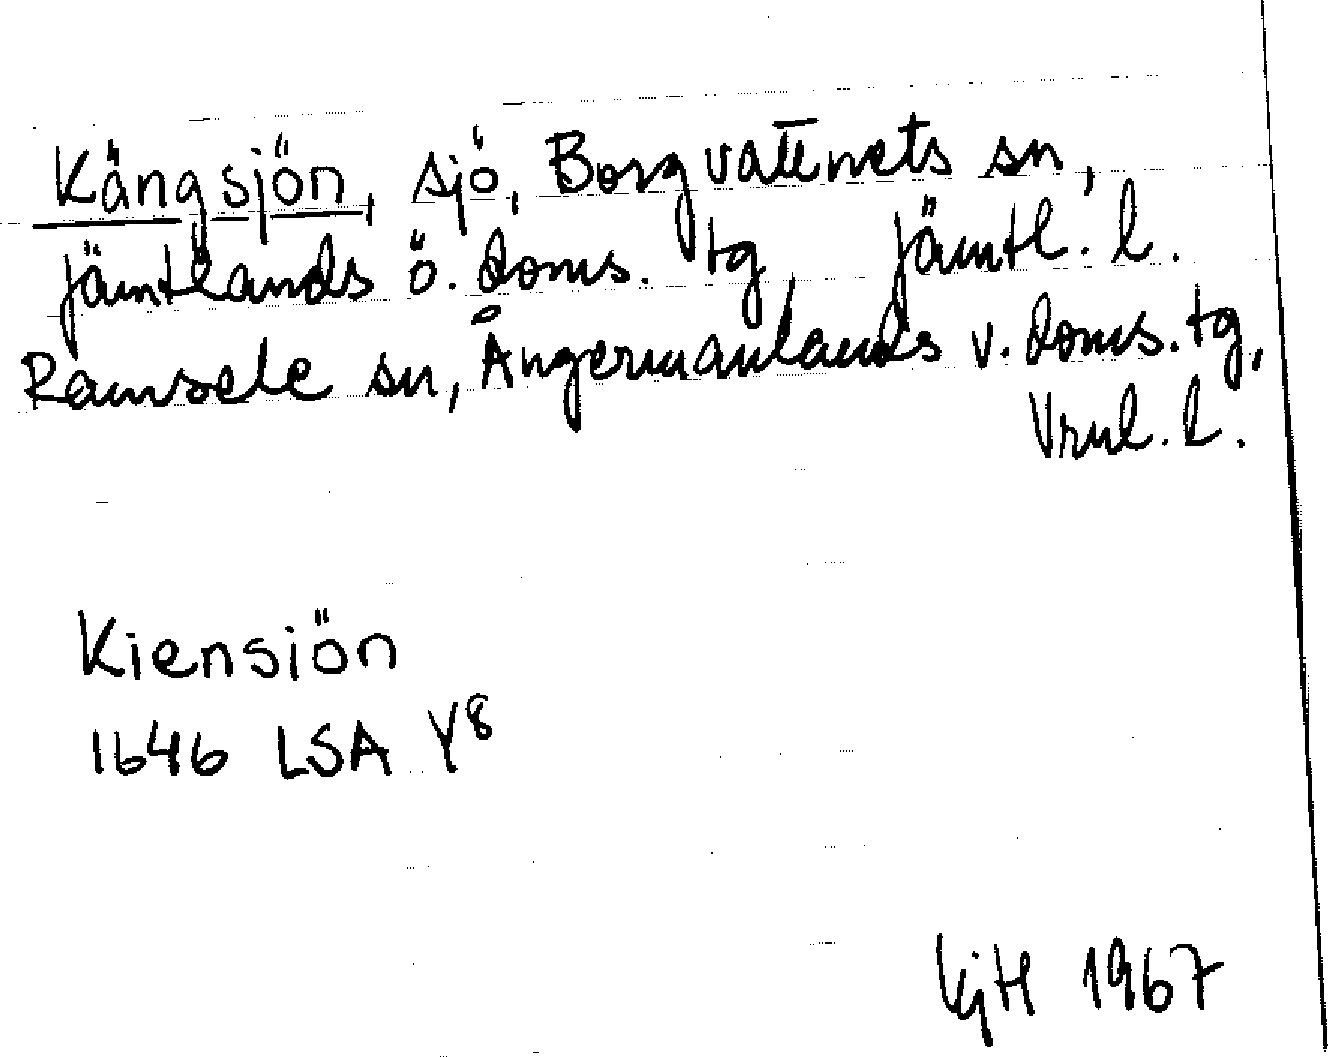 Kängsjön, sjö, Borgvattnets sn,
Jämtlands ö. doms. tg Jämtl. l.
Ramsele sn, Ångermanlands v. doms. tg,
Vrnl. l.
Kiensiön
1646 LSA Y8
KjH 1967